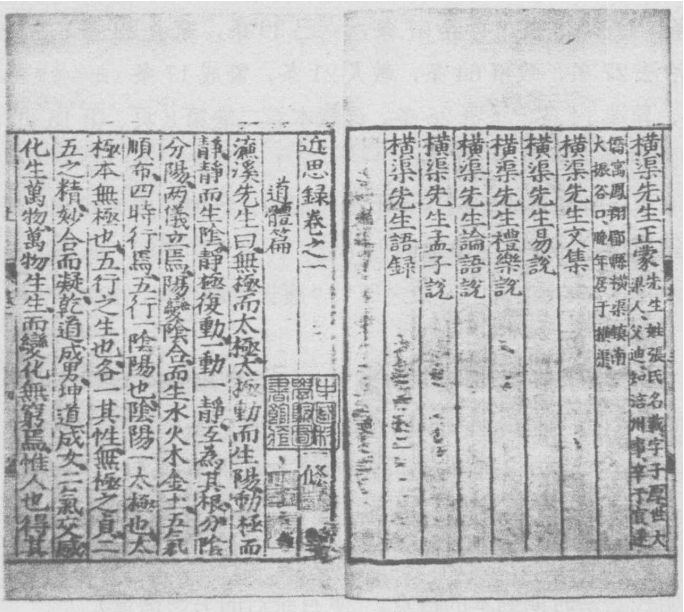 橫渠先生正蒙
先生姓張氏名載字子厚世大
梁人父迪知涪州事卒于官遂
僑寓鳳翔郿縣橫渠鎮南
大振谷口晚年居于橫渠
橫渠先生文集
橫渠先生易說
橫渠先生禮樂說
橫渠先生論語說
橫渠先生孟子說
橫渠先生語錄
近思錄卷之一
道體篇
一條
濂溪先生曰無極而太極太極動而生陽動極而
靜靜而生陰靜極復動一動一靜互為其根分陰
分陽兩儀立焉陽變陰合而生水火木金土五氣
順布四時行焉五行一陰陽也陰陽一太極也太
極本無極也五行之生也各一其性無極之真二
五之精妙合而凝乾道成男坤道成女二氣交感
化生萬物萬物生生而變化無窮焉惟人也得其